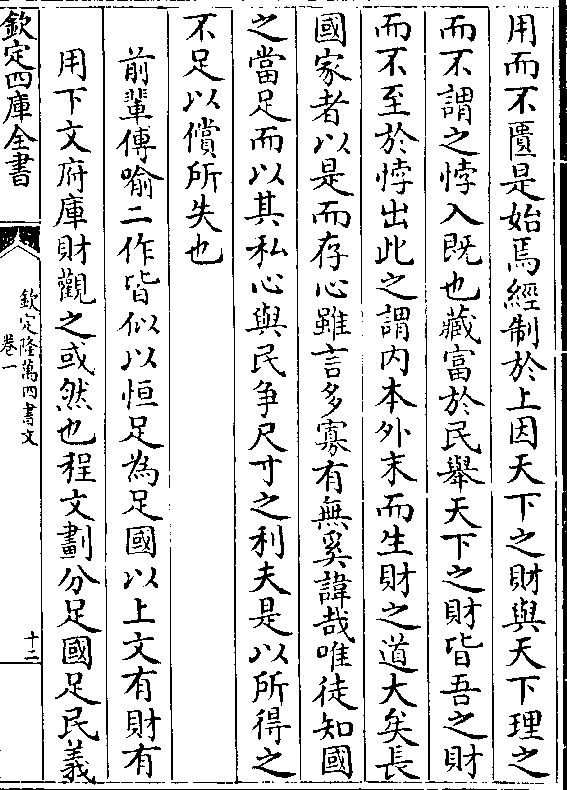 用而不匱是始焉經制於上因天下之財與天下理之
而不謂之悖入既也藏富於民舉天下之財皆吾之財
而不至於悖出此之謂內本外末而生財之道大矣長
國家者以是而存心雖言多寡有無奚諱哉唯徒知國
之當足而以其私心與民争尺寸之利夫是以所得之
不足以償所失也
前輩傳喻二作皆似以恒足為足國以上文有財有
用下文府庫財觀之或然也程文劃分足國足民義
欽定四庫全書
欽定隆萬四書文
卷一
十二